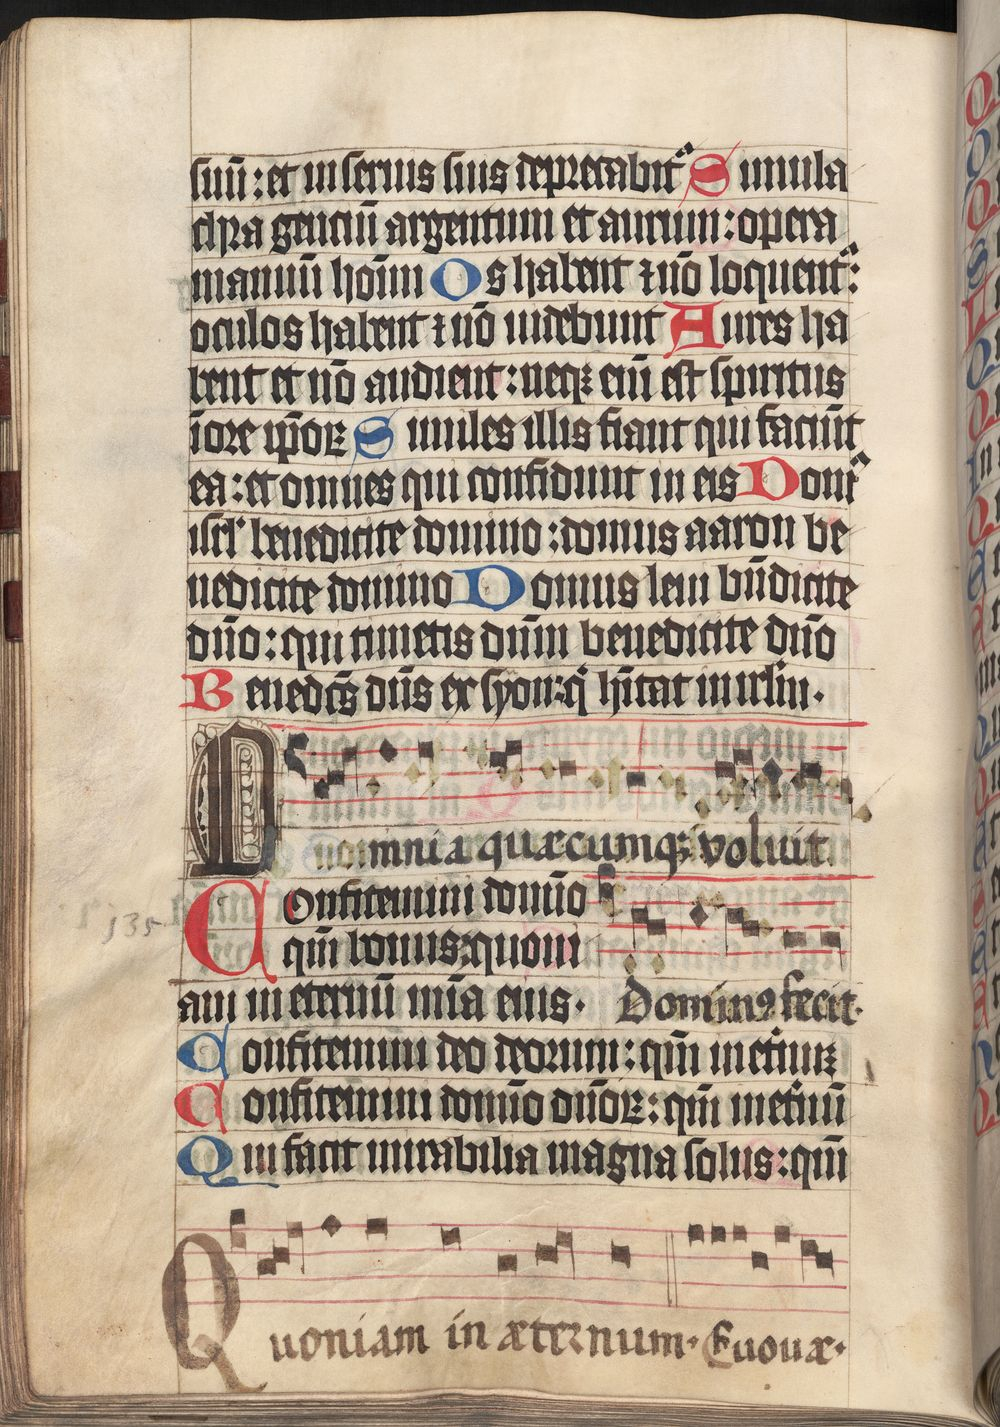 suū: et in servis suis deprecabit᷑ Simula
chra genciū argentum et aurum: opera
manuū hoīm Os habent ⁊ nō loquent᷑:
oculos habent ⁊ nō videbunt Aures ha
bent et nō audient: neqꝫ enī est spiritus
ī ore ip̄oꝝ Similes illis fiant qui faciūt
ea: et omnes qui confidunt in eis Dom᷑
isrl' benedicite domino: domus aaron be
nedicite domino Domus levi bn̄dicite
dn̄o: qui timetis dn̄m benedicite dn̄o
Benedc̄s dn̄s ex syon: q̄ hītat in irlm̄.
D omnia quæcumqꝫ voluit
Confitemini domīo
qm̄ bonus: quoni
135
am in eternū mīa eius. Dominꝰ fecit.
Confitemini deo deorum: qm̄ in et̄nuꝫ
Confitemini domīo dn̄oꝝ: qm̄ in et̄nū
Qui facit mirabilia magna solus: qm̄
Quoniam in æternum. Euouæ.